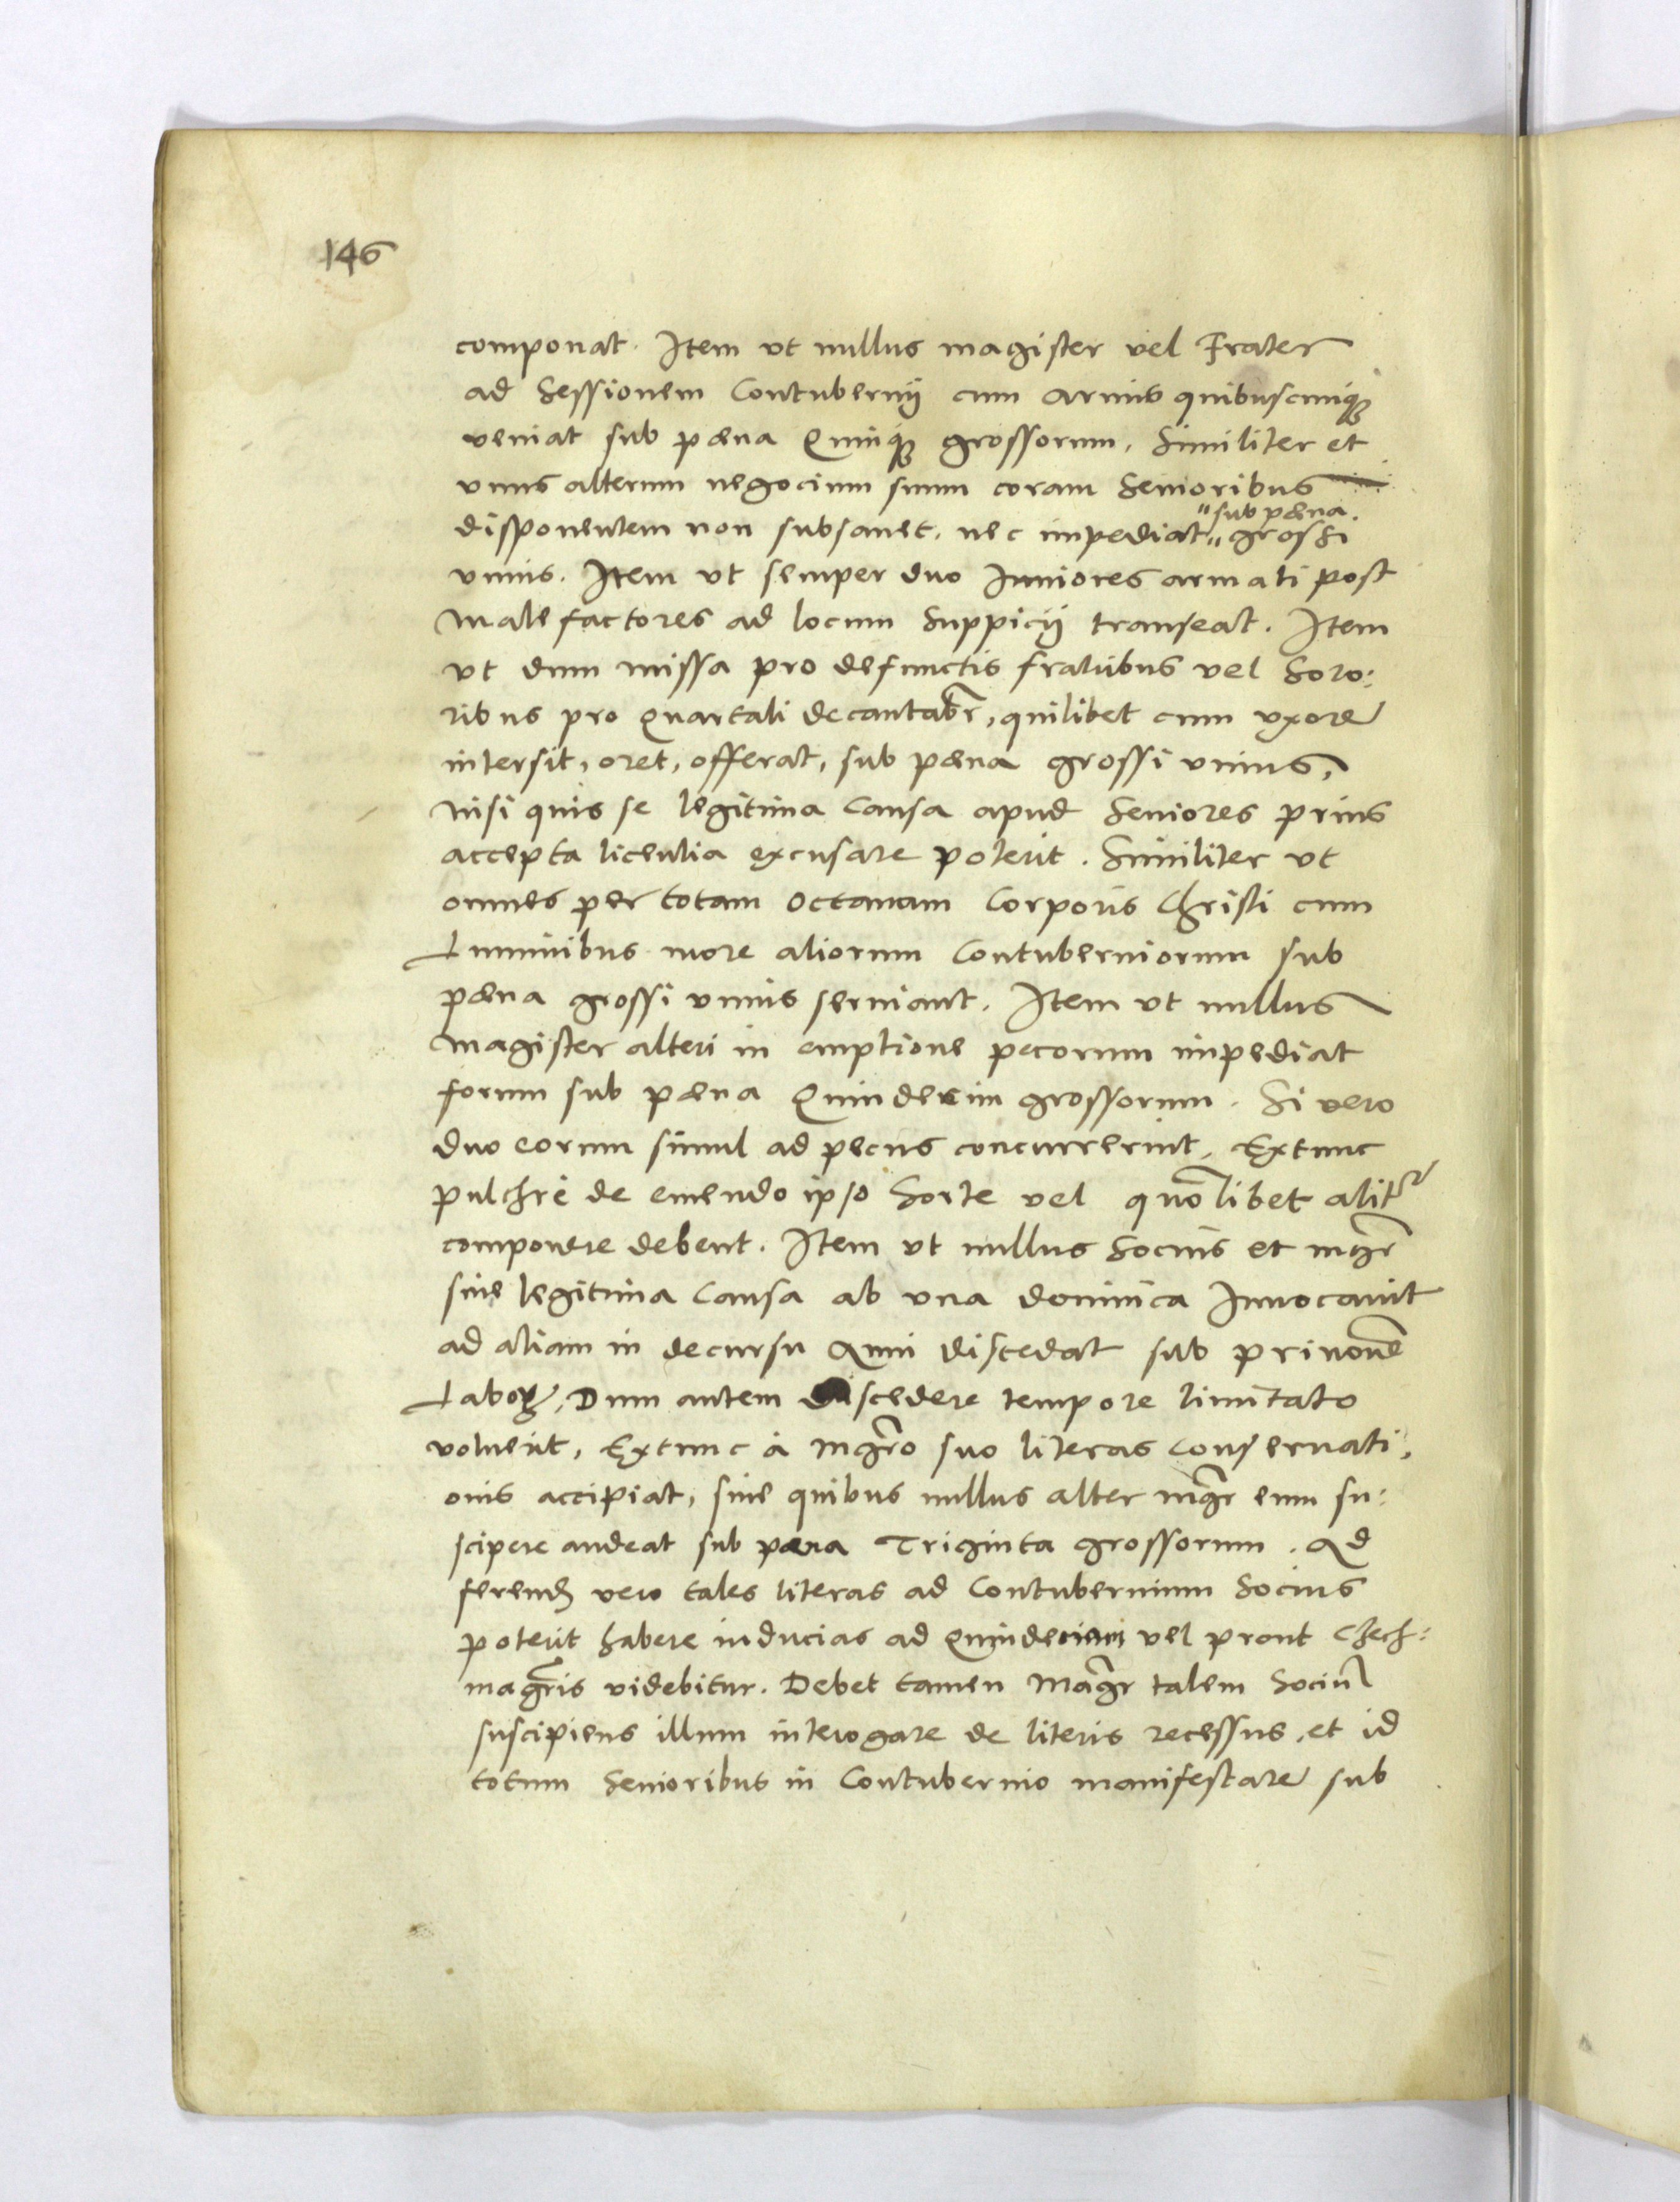 146
componat. Item vt nullus magister vel Frater
ad Sessionem Contubernij cum armis quibuscunq;
veniat sub pæna Quinq; grossorum, Similiter et
vnus alterum negocium suum coram Senioribus
"sub pæna.
disponentem non subsanet, nec impediat" grossi
vnius. Item vt semper duo Iuniores armati post
malefactores ad locum Suppicij transeat. Item
vt dum missa pro defunctis fratribus vel Soro:
ribus pro Quartali decantabr̃, quilibet cum vxore
intersit, oret, offerat, sub pæna grossi vnius,
nisi quis se legitima Causa apud Seniores prius
accepta licentia excusare poterit. Similiter vt
omnes per totam octauam Corporis Christi cum
Luminibus more aliorum Contuberniorum sub
pæna grossi vnius seruiant. Item vt nullus
magister alteri in emptione pecorum impediat
forum sub pæna Quindecim grossorum. Si vero
duo eorum simul ad pecus concurrerint, Extunc
pulchrè de emendo ipso Sorte vel quõlibet alitr
componere debent. Item vt nullus Socius et mgr̃
sine legitima Causa ab vna dominica Inuocauit
ad aliam in decursu Anni discedat sub priuoñe
Labor, Dum autem discedere tempore limitato
voluerit, Extunc à mgr̃o suo literas Conseruati,
onis accipiat, sine quibus nullus alter mgr̃ eum su:
scipere audeat sub pæna Triginta grossorum. Ad
ferend vero tales literas ad Contubernium Socius
poterit habere inducias ad Quindecim vel prout Czech:
magr̃is videbitur. Debet tamen Magr̃ talem Sociũ
suscipiens illum interogare de literis recessus, et id
totum Senioribus in Contubernio manifestare sub